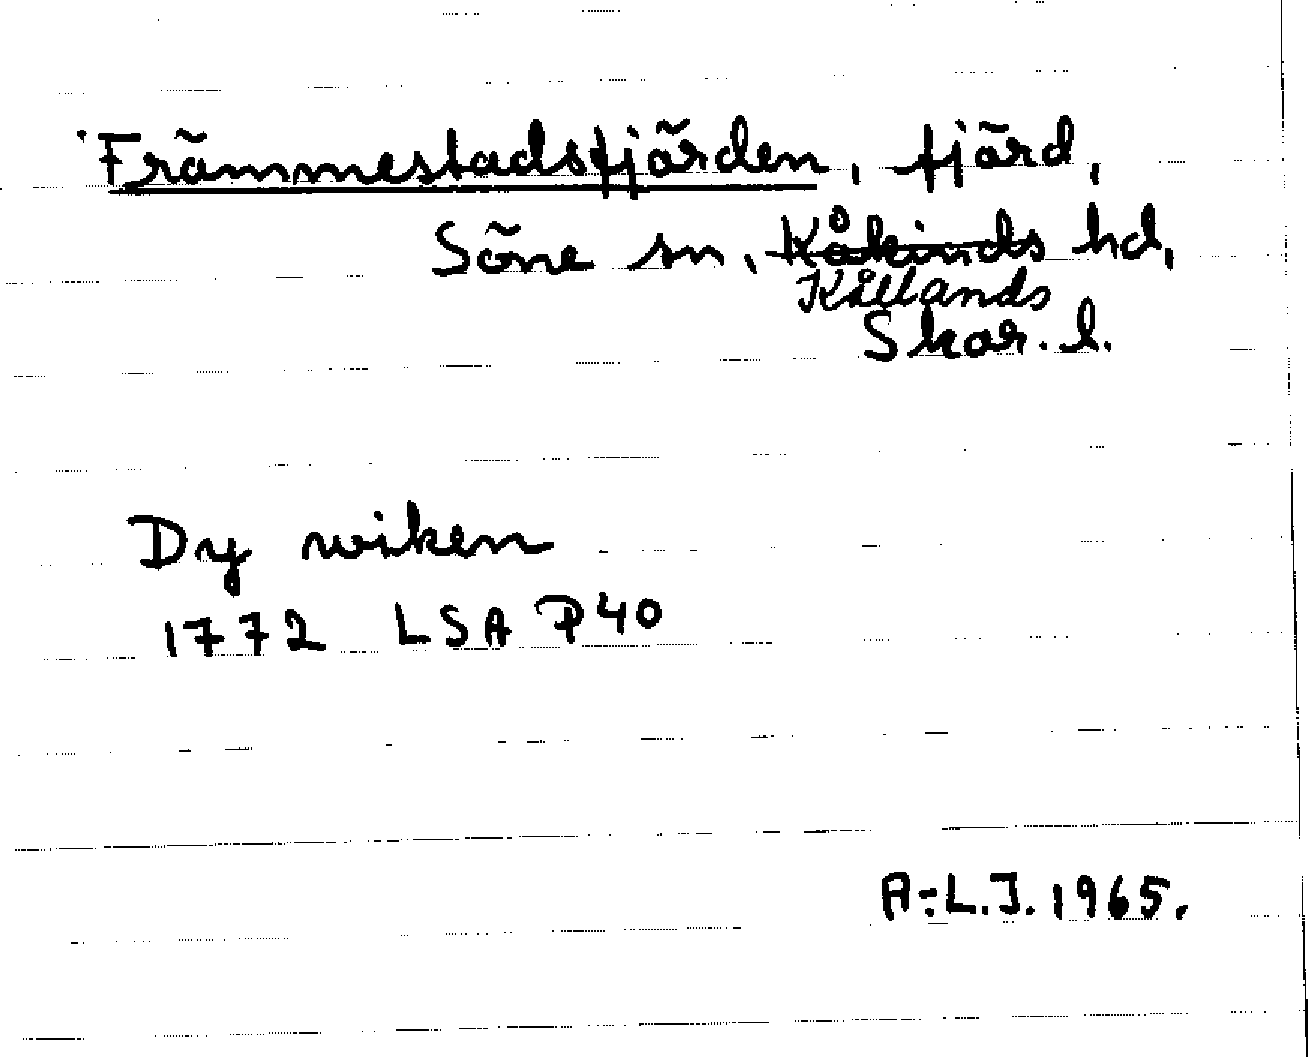 Främmestadsfjärden, fjärd,
Söne sn, Kåkinds hd,
Kållands
Skar. l.
Dy wiken
1772 LSA P40
A-L.J. 1965.